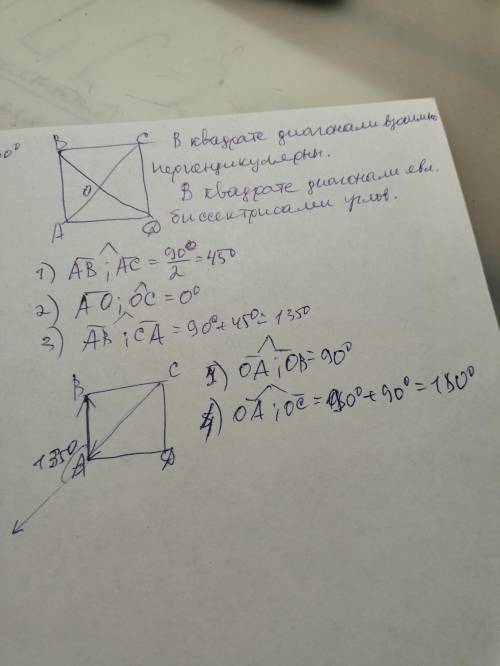 0°
B
C
В квадрате диагонали взаимно
перпендикулярны.
В квадрате диагонали явл.
биссектрисами углов.
O
A
D
1) AB ; AC = 90°/2 = 45°
2) AO ; OC = 0°
3) AB ; CA = 90° + 45° = 135°
B
C
135°
A
D
OA ; OB = 90°
OA ; OC = 90° + 90° = 180°